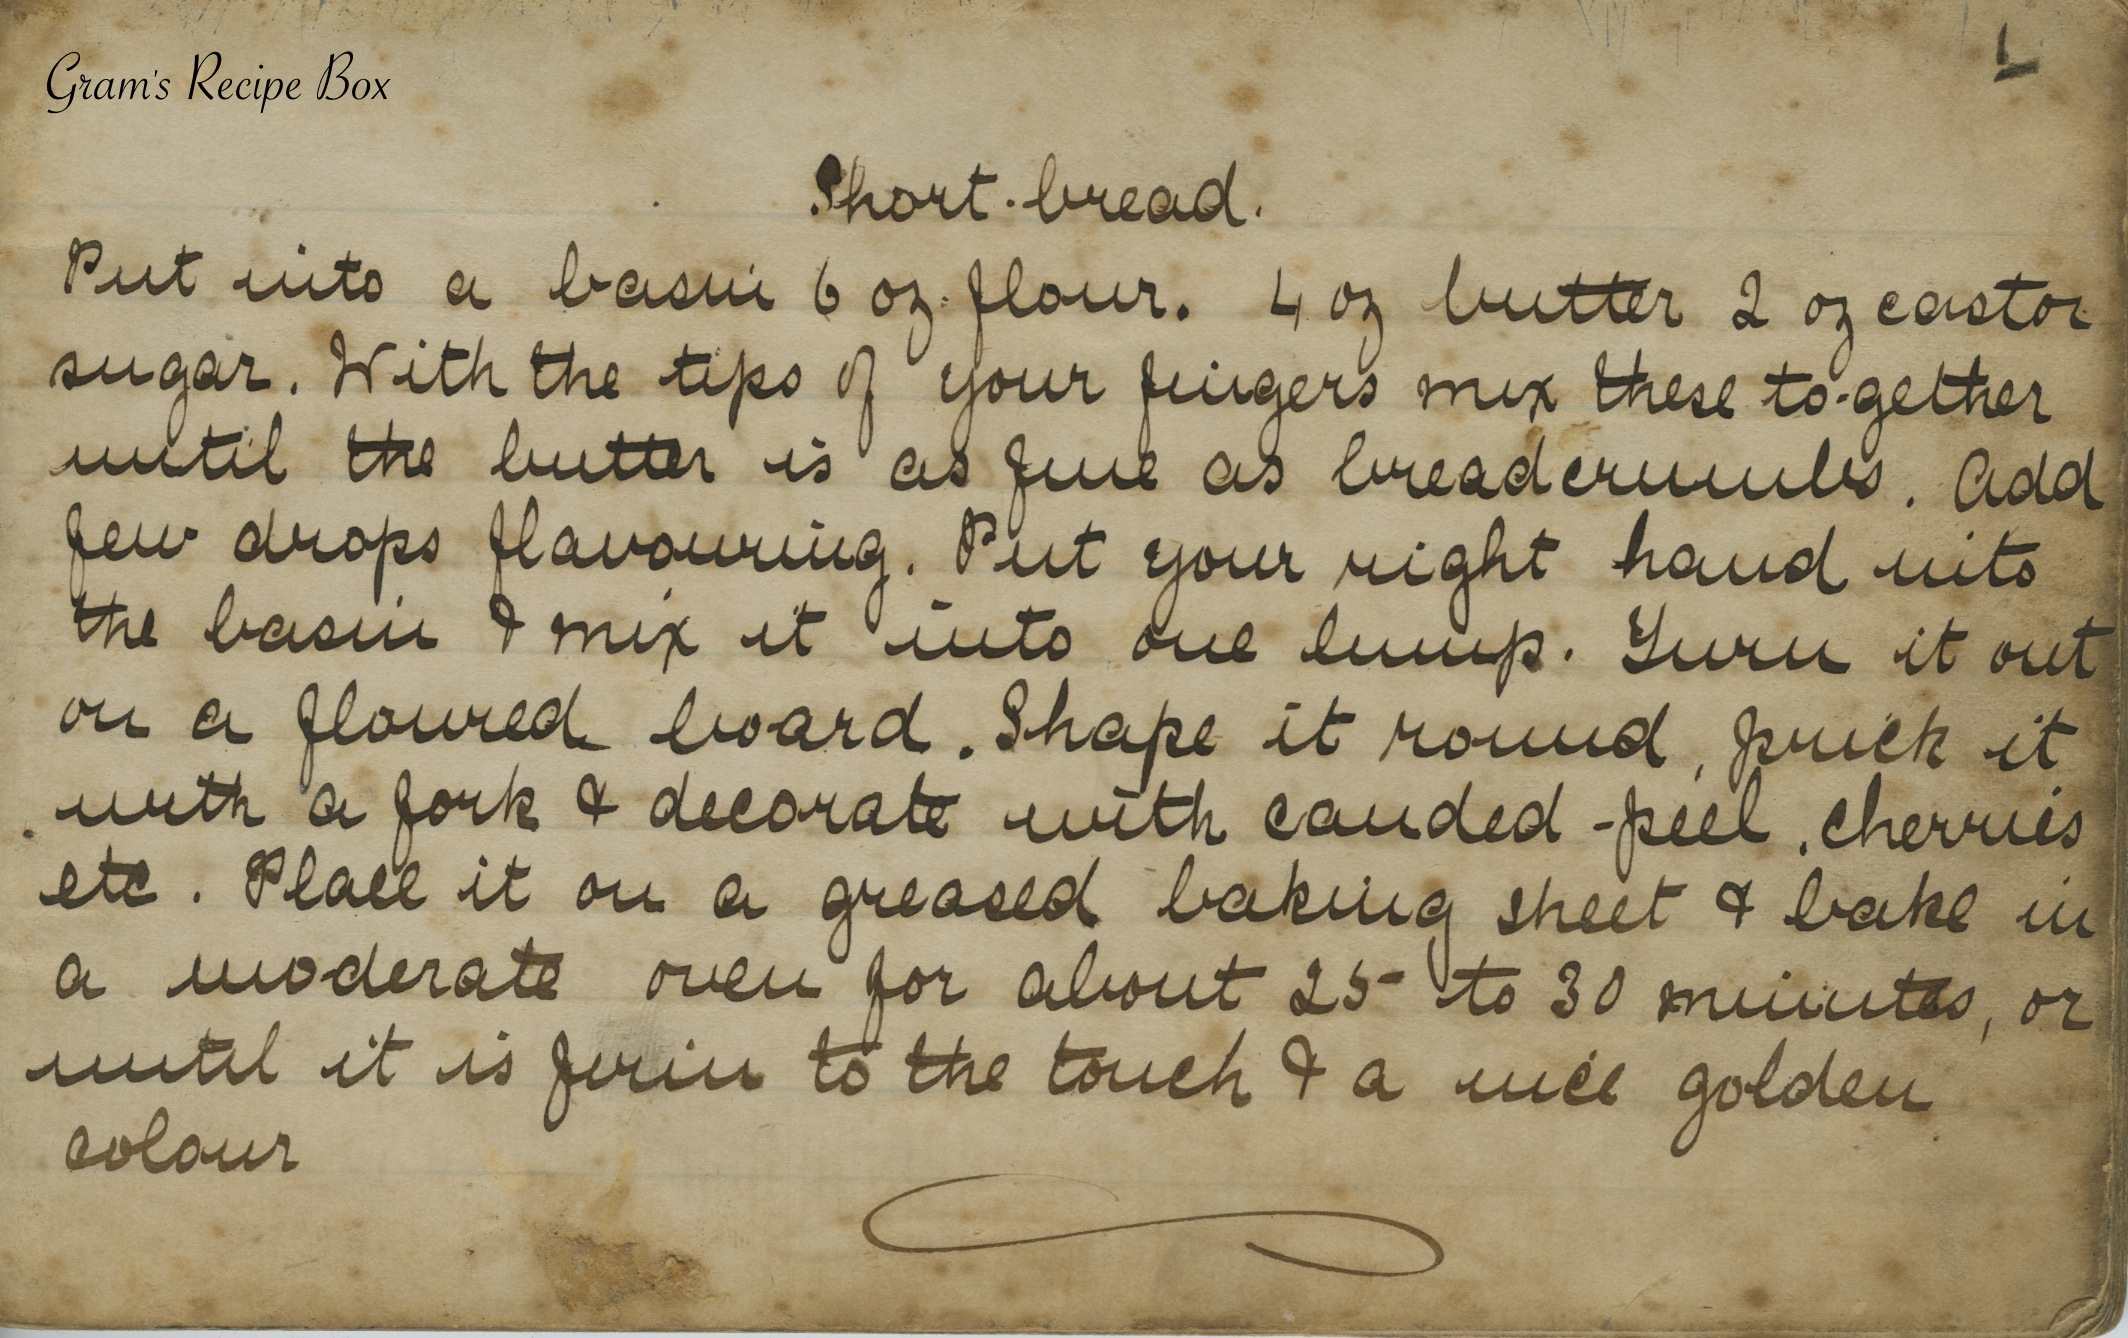 Gram's Recipe Box
L
Short-bread.
Put into a basin 6 oz. flour. 4 oz butter 2 oz castor
sugar. With the tips of your fingers mix these to-gether
until the butter is as fine as breadcrumbs. Add
few drops flavouring. Put your right hand into
the basin & mix it into one lump. Turn it out
on a floured board. Shape it round, prick it
with a fork & decorate with candied-peel, cherries
etc. Place it on a greased baking sheet & bake in
a moderate oven for about 25 to 30 minutes, or
until it is firm to the touch & a nice golden
colour